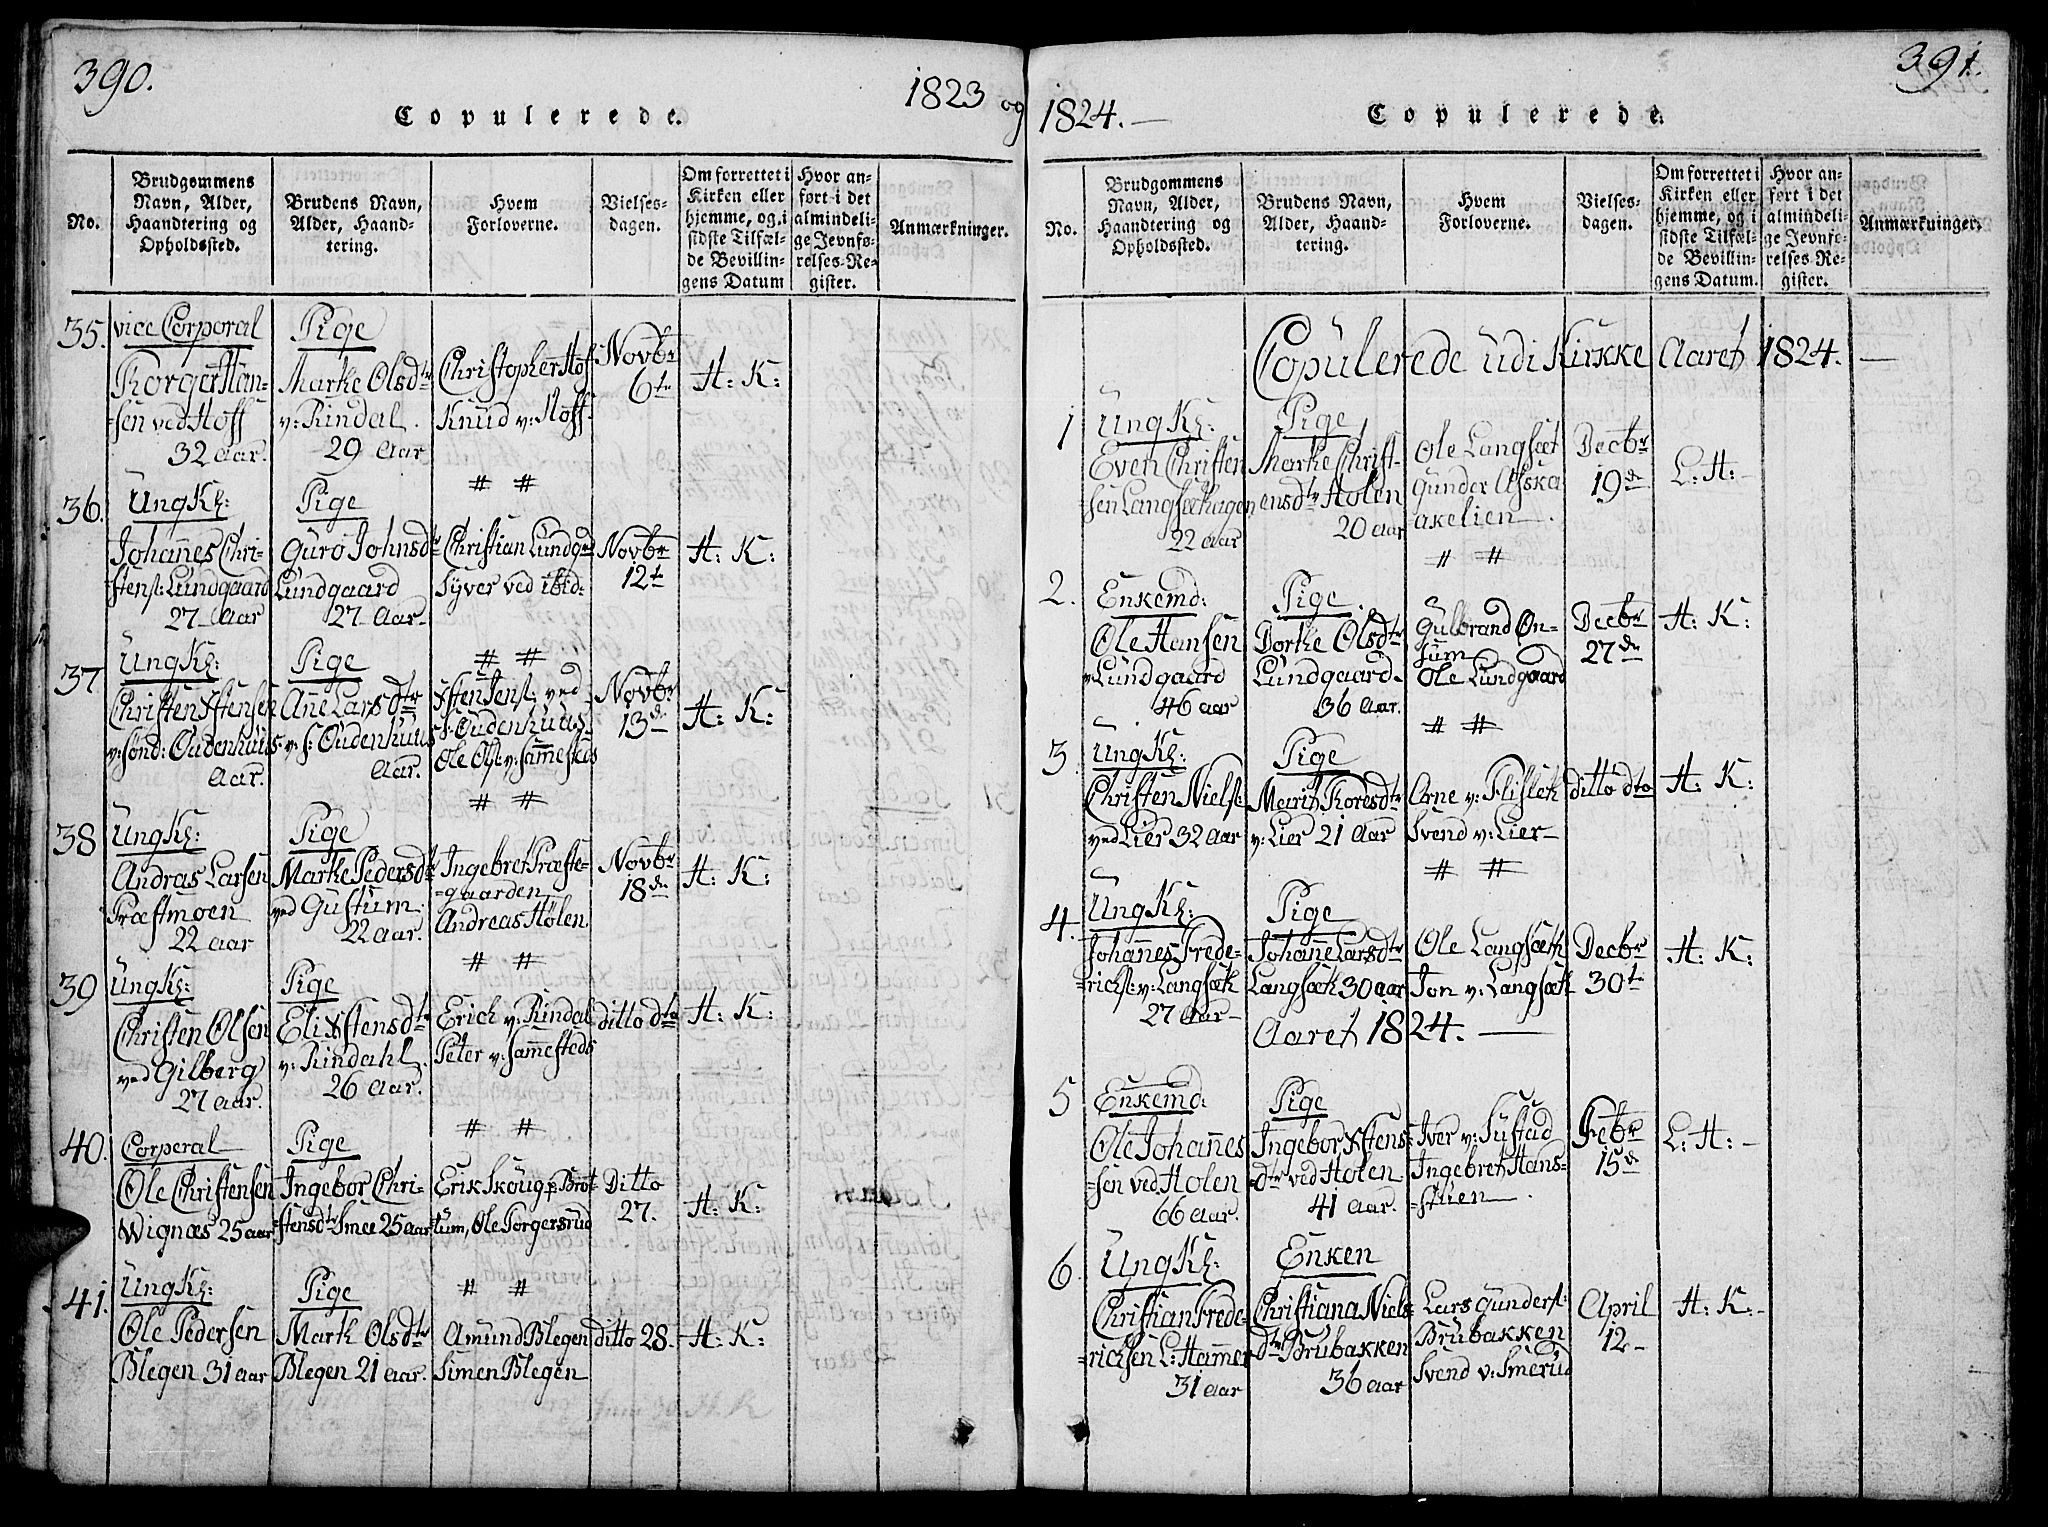 390.
1823 og
Copulerede.
No.
Brudgommens
Navn, Alder,
Haandtering og
Opholdssted.
Brudens Navn,
Alder, Haand-
tering.
Hvem
Forloverne.
Vielses-
dagen.
Om forrettet i
Kirken eller
hjemme, og, i
sidste Tilfæl-
de Bevillin-
gens Datum
Hvor an-
ført i det
almindeli-
ge Jevnfø-
relses-Re-
gister.
Anmærkninger.
35.
vice Corporal
Torger Han-
=sen ved Hoff
32 aar.
Pige
Marte Olsdtr
v: Rindal.
29 Aar
Christopher Hof
Knud v: Hoff.
Novbr
6te
H: K:
# #
36.
Ung K:
Johannes Chri-
stens: Lundgaard
27 Aar
Pige
Guro Johnsdtr
Lundgaard
27 Aar.
Christian Lundgrd
Syver ved ibid:
Novbr
12te
H: K:
# #
37
Ung K:
Christen Stensen
v: Sønd: Oudenhuus.
Aar.
Pige
Ane Larsdtr
v: S: Oudenhuus
Aar.
Stens: ved
S: Oudenhuus
Ole Ols: v: Sammesteds
Novbr
13de
H: K:
# #
38
Ung K:
Andras Larsen
Præstmoen
22 aar
Pige
Marte Pedersdtr
ved Gustum.
22 Aar.
Ingebret Præste-
=gaarden
Andreas Holen
Novbr
18de
H: K:
# #
39
Ung K:
Christen Olsen
ved Gilberg
27 aar.
Pige
Eli Stensdtr
v: Rindahl.
26 Aar.
Erich v: Rindal
Peter v: Sammesteds
ditto dto
H: K:
# #
40.
Corperal
Ole Christensen
Wignæs 25 aar
Pige
Ingebor Chri-
=stensdtr Smee 25 aar
Erik Skoug p Brot-
tum, Ole Torgersrud
Ditto
27.
H: K:
# #
41.
Ung K:
Ole Pedersen
Blegen 31 aar
Pige
Mart Olsdtr
Blegen 21 aar.
Amund Blegen
Simen Blegen
ditto 28.
H: K:
391.
1824.
Copulerede.
No.
Brudgommens
Navn, Alder,
Haandtering og
Opholdssted.
Brudens Navn,
Alder, Haand-
tering.
Hvem
Forloverne.
Vielses-
dagen.
Om forrettet i
Kirken eller
hjemme, og i
sidste Tilfæl-
de Bevillin-
gens Datum.
Hvor an-
ført i det
almindeli-
ge Jevnfø-
relses-Re-
gister.
Anmærkninger.
Copulerede udi Kirkke Aaret 1824.
1
Ung K:
Even Christen
sen Langsæthagen
22 aar
Pige
Marte Christ-
ensdtr Holen
20 aar
Ole Langsæt
Gunder
Decbr
19de
L: H:
# #
2.
Enkemd:
Ole Hansen
v: Lundgaard
46 aar
Pige.
Dorte Olsdtr
Lundgaard.
36 Aar.
Gulbrand On-
sum
Ole Lundgaard
Decbr
27de
H: K:
# #
3
Ung K:
Christen Niels:
ved Lier 32 aar
Pige
Marit Toresdtr
v: Lier 21 Aar
Arne v: Flisæth
Svend v: Lier
ditto dto
H: K:
# #
4.
Ung K:
Johannes Frede-
=richs: v: Langsæth
27 Aar
Pige
Johanne Larsdtr
Langsæth 30 aar
Ole Langsæth
Jon v: Langsæth
Decbr
30te
H: K:
Aaret 1824.
5
Enkemd:
Ole Johannes
=sen ved Holen
66 aar.
Pige
Ingebor Stens=
dtr ved Holen
41 aar.
Iver v: Sustad
Ingebret Hans-
=stuen
Febr
15de
L: H:
6.
Ung K:
Christian Frede-
=richsen L: Hammer
31 aar
Enken
Christiana Niels
dtr Brubakken
36 aar
Lars Gunders:
Brubakken
Svend v: Smerud
April
12
H: K: